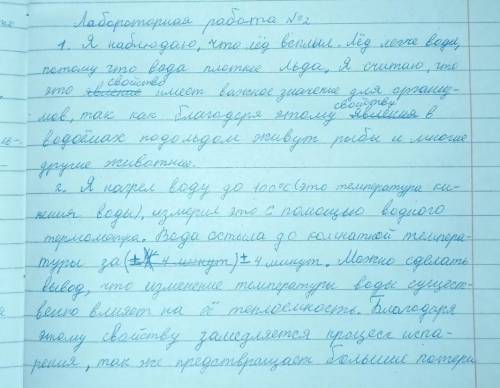 Лабораторная работа №2
1. Я наблюдаю, что лёд всплыл. Лёд легче воды,
потому что вода плотнее льда, Я считаю, что
это явление свойство имеет важное значение для организ-
мов, так как благодаря этому явлению свойству в
водоёмах подольдом живут рыбы и многие
другие животные.
2. Я нагрел воду до 100°C (это температура ки-
пения воды), измерил это с помощью водного
термометра. Вода остыла до комнатной темпера-
туры за (± 4 минут) ± 4 минут. Можно сделать
вывод, что изменение температуры воды сущест-
венно влияет на её теплоёмкость. Благодаря
этому свойству замедляется процесс испа-
рения, так же предствращает большие потери